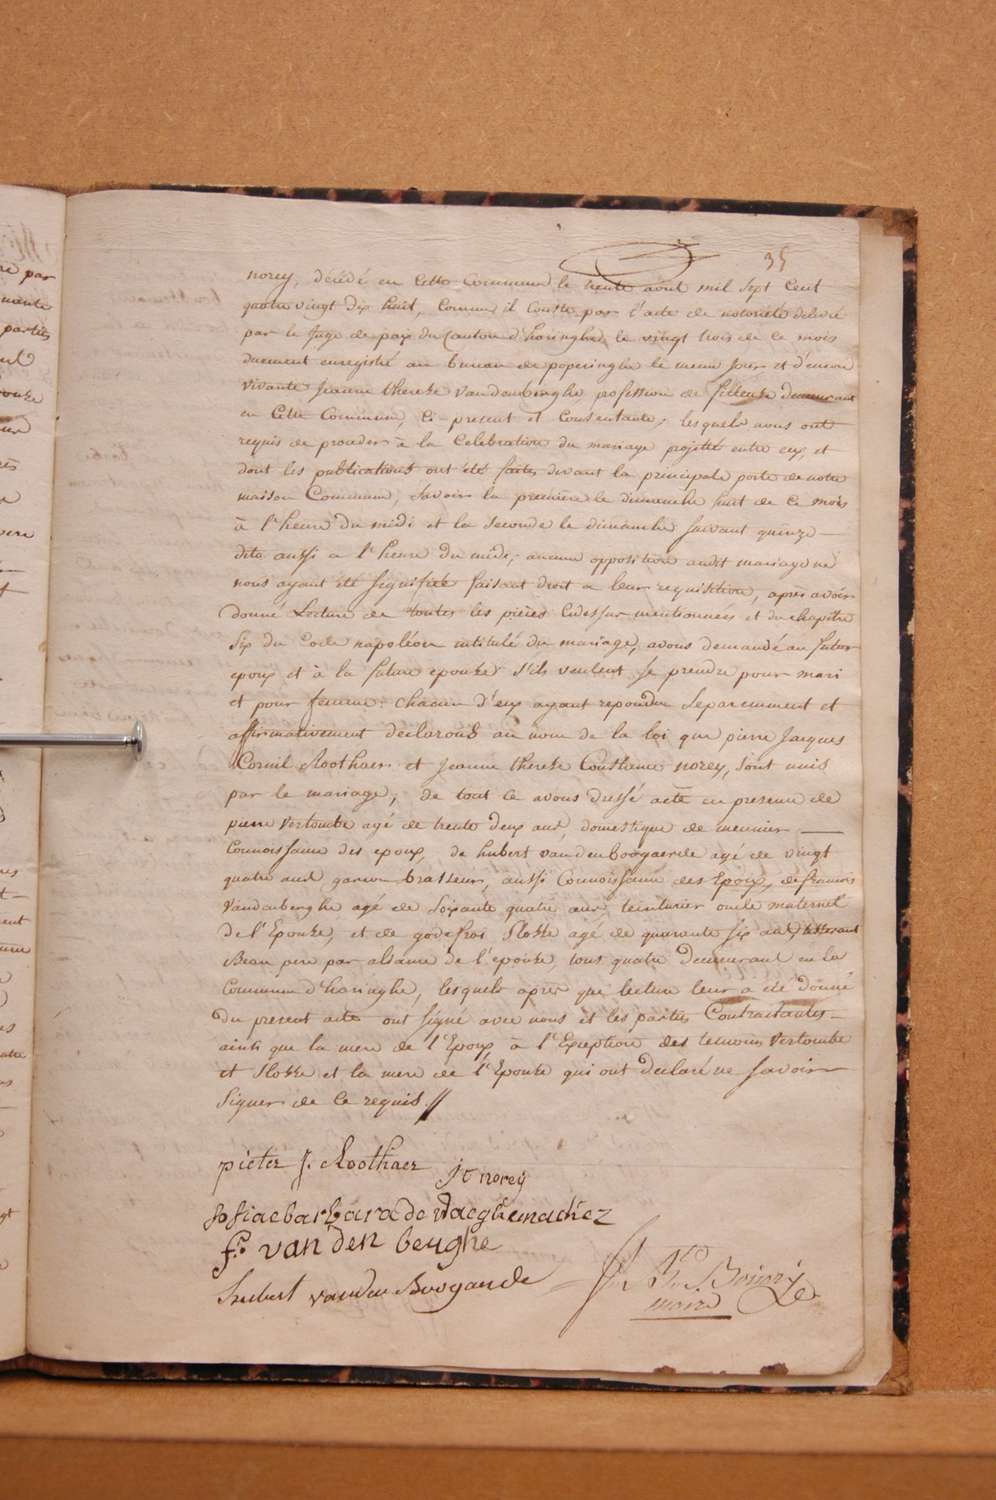 35
norey, décédé en cette Commune le trente aout mil sept Cent
quatre vingt dix huit, comme il Conste par l'acte de notorieté delivré
par le Juge de paix du Canton d'haringhe, le vingt trois de ce mois
duement enregistré au bureau de poperinghe le meme jour et d'encore
vivante Jeanne therese Vandenberghe, profession de fileuse demeurant
en cette Commune, Ci-present et Consentante, lesquels nous ont
requis de proceder à la Celebration du mariage projetté entre eux, et
dont les publications ont été faites devant la principale porte de notre
maison Commune, Savoir la premiere le dimanche huit de ce mois
à l'heure du midi et la seconde le dimanche suivant quinze
dito aussi a l'heure du midi, aucune opposition audit mariage ne
nous ayant été signifiée faisant droit a leur requisition, après avoir
donné Lecture de toutes les pieces cidessus mentionnées et du chapitre
Six du Code napoléon intitulé du mariage, avons demandé au futur
epoux et à la future epouse s'ils veulent se prendre pour mari
et pour femme: chacun d'eux ayant repondu Separemment et
affirmativement declarons au nom de la loi que pierre Jacques
Corneil Roothaer et Jeanne therese Constance norey, sont unis
par le mariage, de tout ce avons dressé acte en presence de
pierre Vertombe agé de trente deux ans, domestique de meunier
Connoissance des epoux, de hubert vandenboogaerde agé de vingt
quatre ans garcon brasseur, aussi Connoissance des Epoux, de francois
Vandenberghe agé de soixante quatre ans, teinturier oncle maternel
de l'Epouse, et de godefroi Plokke agé de quarante six ans,
Beau pere par aliance de l'épouse, tous quatre demeurant en la
Commune d'haringhe, lesquels après que lecture leur a été donné
du present acte ont signé avec nous et les parties Contractantes
ainsi que la mere de l'Epoux à l'Exception des temoins Vertombe
et Plokke et la mere de l'Epouse qui ont declaré ne savoir
signer de ce requis.//
pieter J. Roothaer
jt norey
sofiae barbara de
f. van den berghe
Hubert vanden Boogaerde
maire